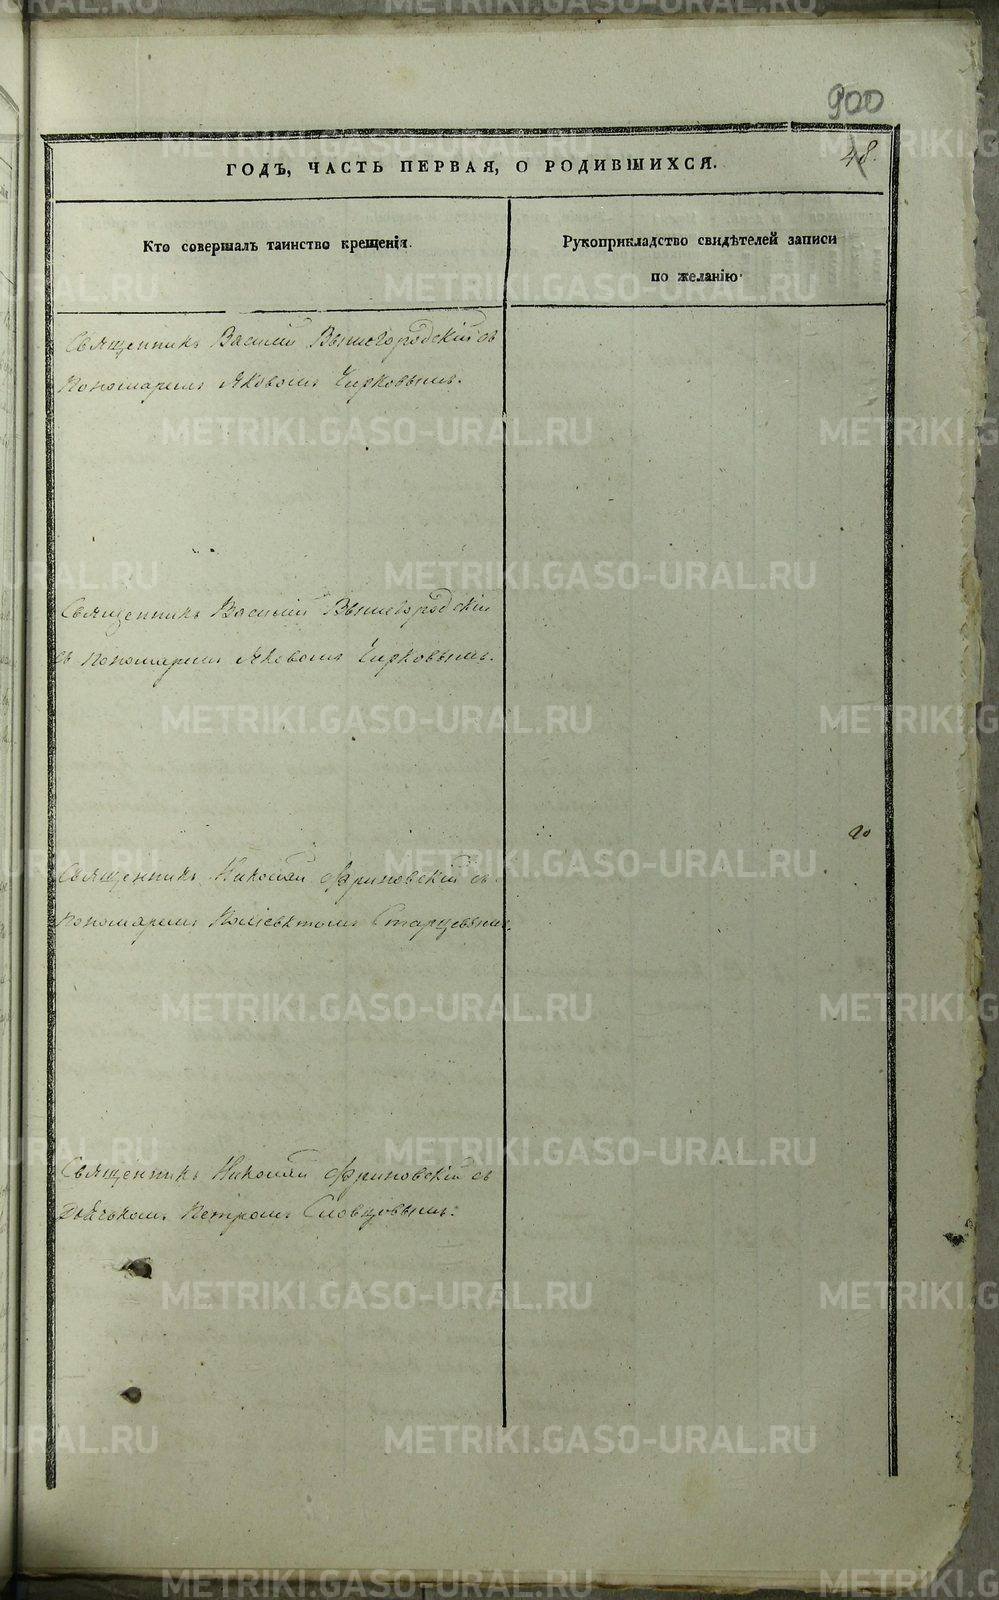 900
48.
ГОДЪ, ЧАСТЬ ПЕРВАЯ, О РОДИВШИХСЯ.
Кто совершалъ таинство крещенія.
Рукоприкладство свидѣтелей записи
по желанію
Священникъ Василій Вышегородскій съ
Пономаремъ Яковомъ Чирковымъ.
Священникъ Василій Вышегородскій
съ пономаремъ Яковомъ Чирковымъ.
Священникъ Николай Африновскій съ
пономаремъ Старцевымъ.
Священникъ Николай Африновскій съ
Дьячькомъ Петромъ Словцовымъ.
METRIKI.GASO-URAL.RU